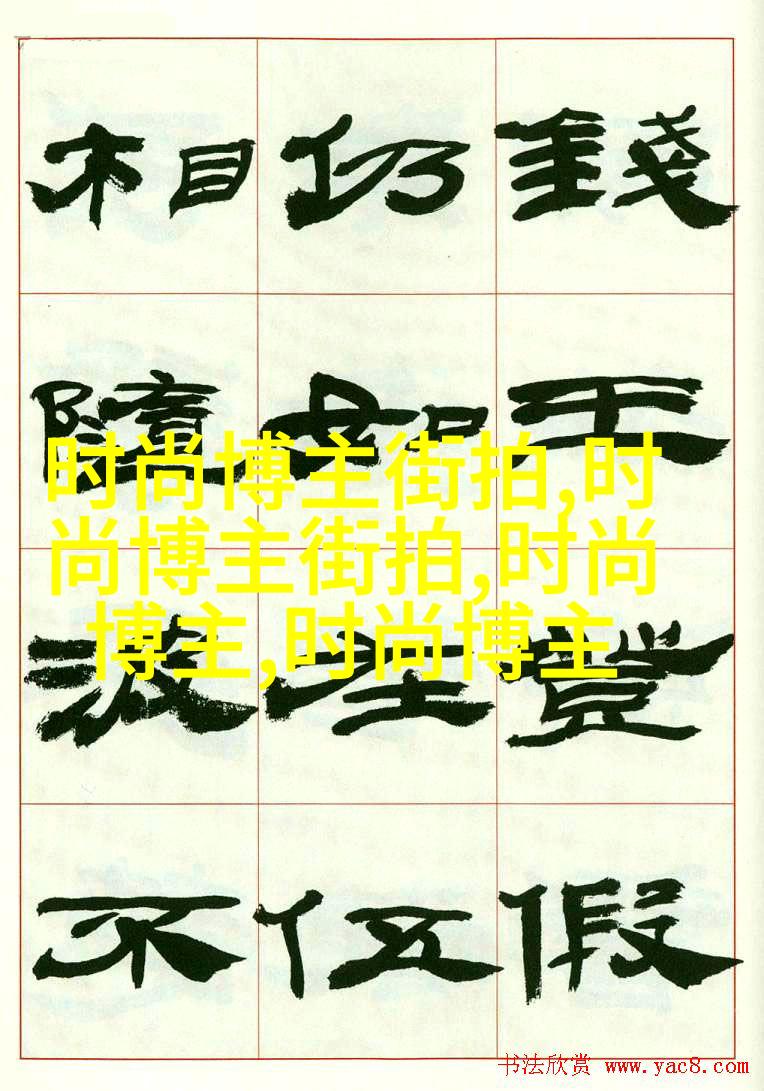 錢王登假
仍如伍
相隨不
时尚博主街拍,时
尚博主街拍,时尚
博主,时尚博主
书法欣赏 www.yac8.com